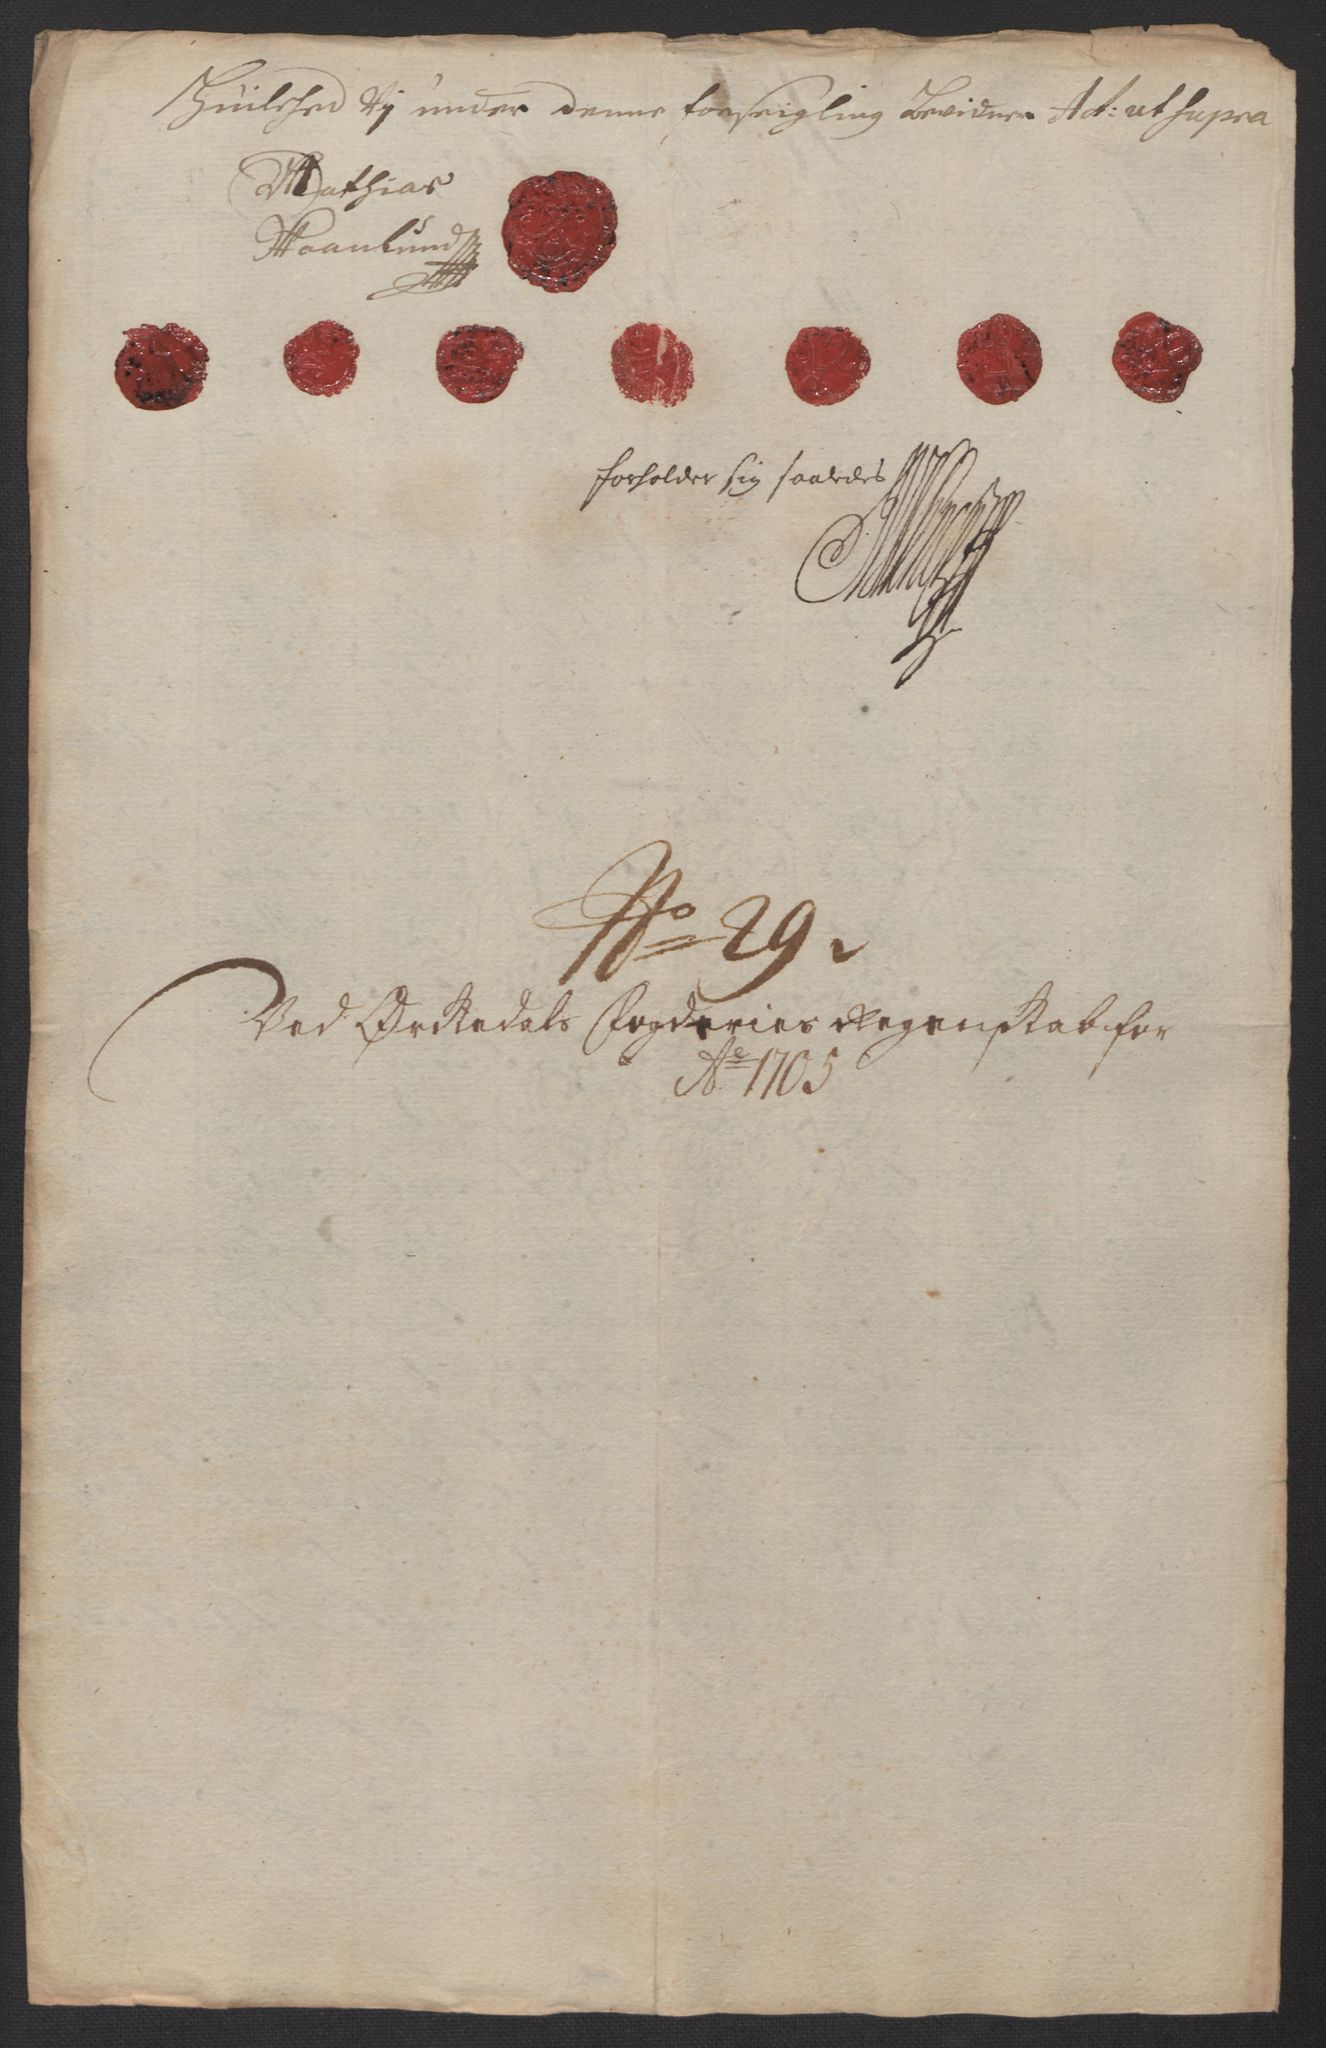 Huilched Vj under denne forseigling Bevidner Act: ut supra
Mathias
forholder sig saaledes
No 29.
Ved Ørckedals Fogderies Regenskab for
Ao 1705